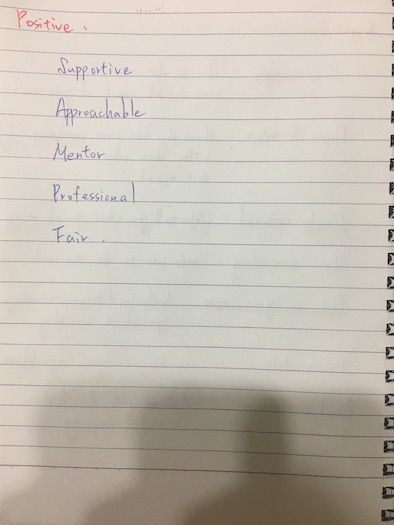 Positive.
Supportive
Approachable
Mentor
Professional
Fair.